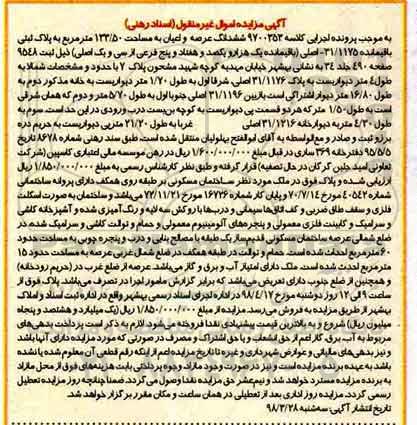 آگهی مزایده اموال غیر منقول (اسناد رهنی)
به موجب پرونده اجرایی کلاسه ۹۷۰۰۳۵۳ ششدانگ عرصه و اعیان به مساحت ۱۳۳/۵۰ متر مربع به پلاک ثبتی
باقیمانده ۳۱/۱۱۷۵- اصلی (باقیمانده یک هزار و یکصد و هفتاد و پنج فرعی از سی و یک اصلی) ذیل ثبت ۹۵۴۸
صفحه ۴۹۰ جلد ۳۴ به نشانی بهشهر خیابان مهدیه کوچه شهید مشحون پلاک ۷ با حدود و مشخصات شمالا به
طول ۴ متر دیواریست به پلاک ۳۱/۱۱۷۶ اصلی. شرقا اول به طول ۱/۷۰ متر دیواریست به خانه مذکور دوم به
طول ۱۶/۸۰ متر دیوار اشتراکی است بازبین ۳۱/۱۱۹۶ اصلی جنوبا اول به طول ۵/۷۰ متر و دوم که همان شرقی
است به طول ۱/۵۰ متر که هر دو قسمت پی دیواریست به کوچه بن‌بست درب ورودی در این حد است. سوم به
طول ۴/۳۰ متر به دیوارخانه ۳۱/۱۲۱۶ اصلی غربا به طول ۲۱/۲۰ متر پی دیواریست به حریم دره
برزو ثبت و صادر و مع‌الواسطه به آقای ابوالفتح بهلولیان منتقل شده است. طبق سند رهنی شماره ۸۶۷۸ تاریخ
۹۵/۵/۵ دفترخانه ۳۶۹ ساری در قبال مبلغ ۱/۶۰۰/۰۰۰/۰۰۰ ریال در رهن موسسه مالی اعتباری کاسپین (شرکت
تعاونی امید جلین گرگان در حال تصفیه) قرار گرفته و طبق نظر کارشناس رسمی به مبلغ ۱/۸۵۰/۰۰۰/۰۰۰ ریال
ارزیابی شده و پلاک فوق در ملک مورد نظر ساختمان مسکونی بر طبقه روی همکف دارای پروانه ساختمانی
شماره ۴۰۵۴۲ مورخ ۷۰/۷/۱۴ و پایان کار شماره ۱۶۷۲۶ مورخ ۷۲/۱۱/۲۱ می باشد و ساختمان به صورت اسکلت
فلزی و سقف طاق ضربی و کف اتاقها سیمانی و درب‌ها با روکش سه لایه و رنگ‌آمیزی شده و آشپزخانه کاشی
و سرامیک و کابینت فلزی معمولی و پنجره‌های آلومینیوم معمولی و حمام و توالت کاشی و سرامیک شده در
ضلع شمالی عرصه ساختمان مسکونی قدیم‌ساز یک طبقه با مصالح بنایی و درب و پنجره چوبی به مساحت حدود
۶۰ مترمربع احداث شده است. حمام و توالت در طبقه همکف در ضلع شمال غربی عرصه به مساحت حدود ۱۵
مترمربع احداث شده است. ملک دارای امتیاز آب و برق و گاز می باشد. عرصه از ضلع غرب در (حریم رودخانه)
و همچنین از ضلع جنوب دارای تعریض می‌باشد که برابر گزارش مامور اجرا در تصرف می‌باشد. پلاک فوق از
ساعت ۹ الی ۱۲ روز دوشنبه مورخ ۹۸/۴/۱۷ در اداره اجرای اسناد رسمی بهشهر واقع در اداره ثبت اسناد و املاک
بهشهر از طریق مزایده به فروش می‌رسد. مزایده از مبلغ ۱/۸۵۰/۰۰۰/۰۰۰ ریال (یک میلیارد و هشتصد و پنجاه
میلیون ریال) شروع و به بالاترین قیمت پیشنهادی نقدا فروخته می‌شود. لازم به ذکر است پرداخت بدهی‌های
مربوط به آب، برق، گاز اعم از حق انشعاب و یا حق اشتراک و مصرف در صورتی که مورد مزایده دارای آنها باشد
و نیز بدهی‌های مالیاتی و عوارض شهرداری و غیره تا تاریخ مزایده اعم از اینکه رقم قطعی آن معلوم شده یا نشده
باشد به عهده برنده مزایده است و نیز در صورت وجود مازاد وجوه پرداختی بابت هزینه‌های فوق از محل مازاد
به برنده مزایده مسترد خواهد شد و نیم‌عشر حق مزایده نقدا وصول می‌گردد. ضمنا چنانچه روز مزایده تعطیل
رسمی گردد. مزایده روز اداری بعد از تعطیلی در همان ساعت و مکان مقرر برگزار خواهد شد.
تاریخ انتشار آگهی: سه‌شنبه ۹۸/۳/۲۸